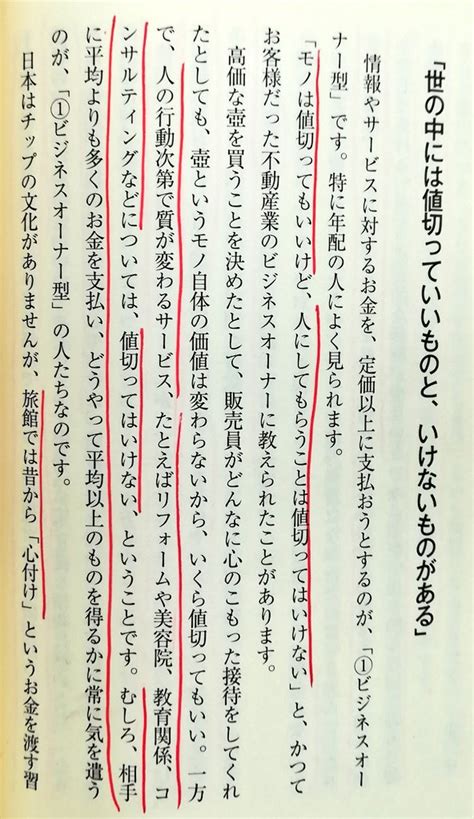 「世の中には値切っていいものと、いけないものがある」
情報やサービスに対するお金を、定価以上に支払おうとするのが、「①ビジネスオー
ナー型」です。特に年配の人によく見られます。
「モノは値切ってもいいけど、人にしてもらうことは値切ってはいけない」と、かつて
お客様だった不動産業のビジネスオーナーに教えられたことがあります。
高価な壺を買うことを決めたとして、販売員がどんなに心のこもった接待をしてくれ
たとしても、壺というモノ自体の価値は変わらないから、いくら値切ってもいい。一方
で、人の行動次第で質が変わるサービス、たとえばリフォームや美容院、教育関係、コ
ンサルティングなどについては、値切ってはいけない、ということです。むしろ、相手
に平均よりも多くのお金を支払い、どうやって平均以上のものを得るかに常に気を遣う
のが、「①ビジネスオーナー型」の人たちなのです。
日本はチップの文化がありませんが、旅館では昔から「心付け」というお金を渡す習